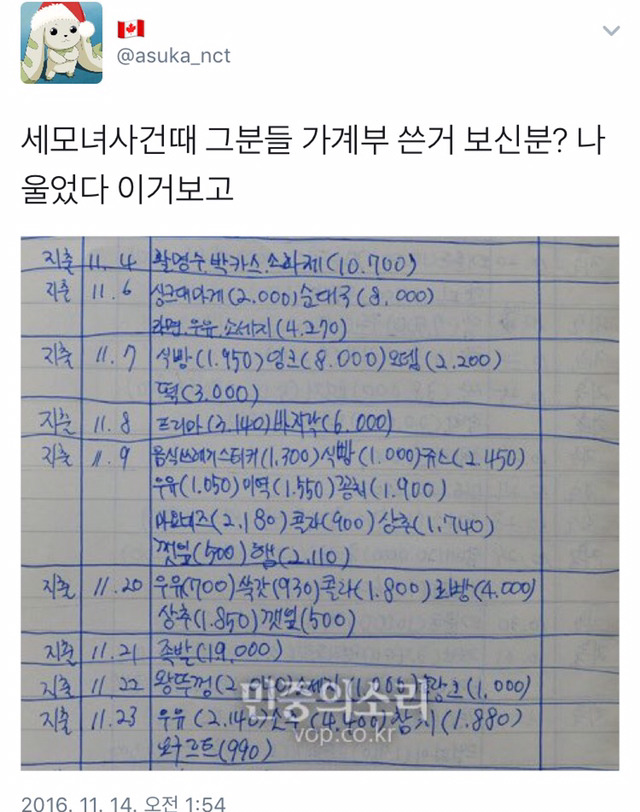 @asuka_nct
세모녀사건때 그분들 가계부 쓴거 보신분? 나
울었다 이거보고
지출 11. 4 활명수 박카스 소화제 (10.700)
지출 11. 6 싱크대마개 (2.000) 순대국 (8,000)
라면, 우유, 소세지 (4.270)
지출 11. 7 식빵 (1.950) 잉크 (8.000) 오뎅 (2,200)
떡 (3.000)
지출 11. 8 프리아 (3.140) 바지락 (6.000)
지출 11. 9 음식쓰레기스티커 (1,300) 식빵 (1.000) 쥬스 (2.450)
우유 (1.050) 미역 (1.550) 꽁치 (1.900)
마요네즈 (2.180) 콜라 (900) 상추 (1.740)
깻잎 (500) 햄 (2.110)
지출 11.20 우유 (700) 쑥갓 (930) 콜라 (1.800) (4.000)
상추 (1.850) 깻잎 (500)
지출 11.21 족발 (19,000)
지출 11.22 왕뚜껑 소세지 (1.000)
지출 11.23 우유 (2.140) 소주 (4,400) 참치 (1.880)
요구르트 (990)
민중의소리
vop.co.kr
2016. 11. 14. 오전 1:54